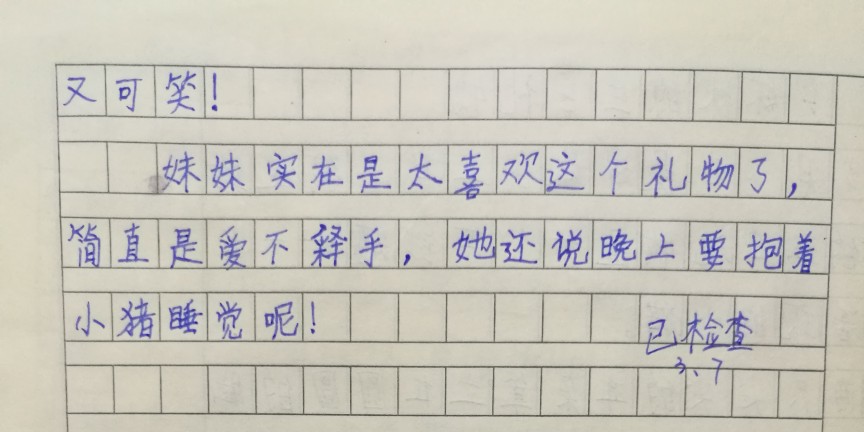 又可笑！
妹妹实在是太喜欢这个礼物了，
简直是爱不释手，她还说晚上要抱着
小猪睡觉呢！
已检查
3、7